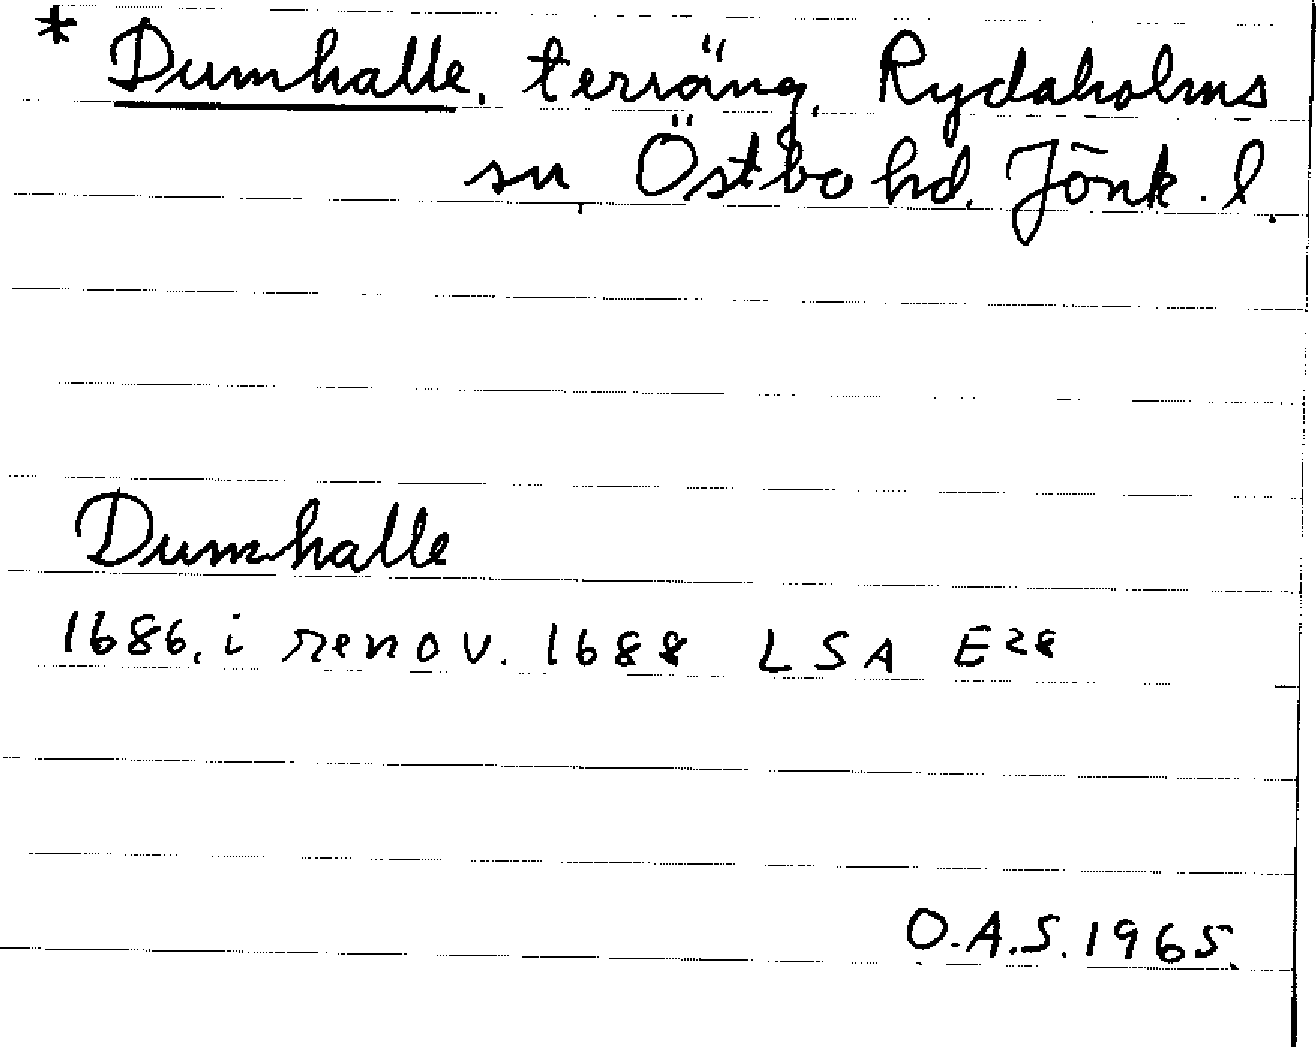 * Dumhalle, terräng, Rydaholms
sn, Östbo hd. Jönk. l.
Dumhalle
1686, i renov. 1688 LSA E28
O.A.S. 1965.